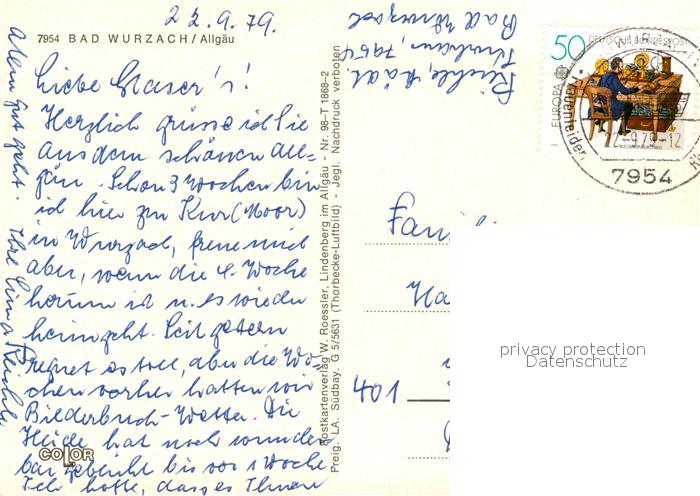 22.9.79.
7954 BAD WURZACH / Allgäu
Liebe Glaser's!
Herzlich grüsse ich Sie
aus dem schönen All=
gäu. Schon 3 Wochen bin
ich hier zur Kur (Moor)
in Wurzach, freue mich
aber, wenn die 4. Woche
herum ist u. es wieder
heimgeht. Seit gestern
regnet es toll, aber die Wo=
chen vorher hatten wir
Bilderbuch-Wetter. Die
Heide hat noch wunder
bar geblüht bis vor 1 Woche
Ich hoffe, dass es Ihnen
allen gut geht. Ihre
COLOR
Postkartenverlag W. Roessler, Lindenberg im Allgäu - Nr. 98-T 1868-2
Freig. LA. Südbay. G 5/5631 (Thorbecke-Luftbild) - Jegl. Nachdruck verboten
7954
Bad Wurzach
50
DEUTSCHE BUNDESPOST
EUROPA
-9.79-12
7954
Fam
Ha
401
privacy protection
Datenschutz